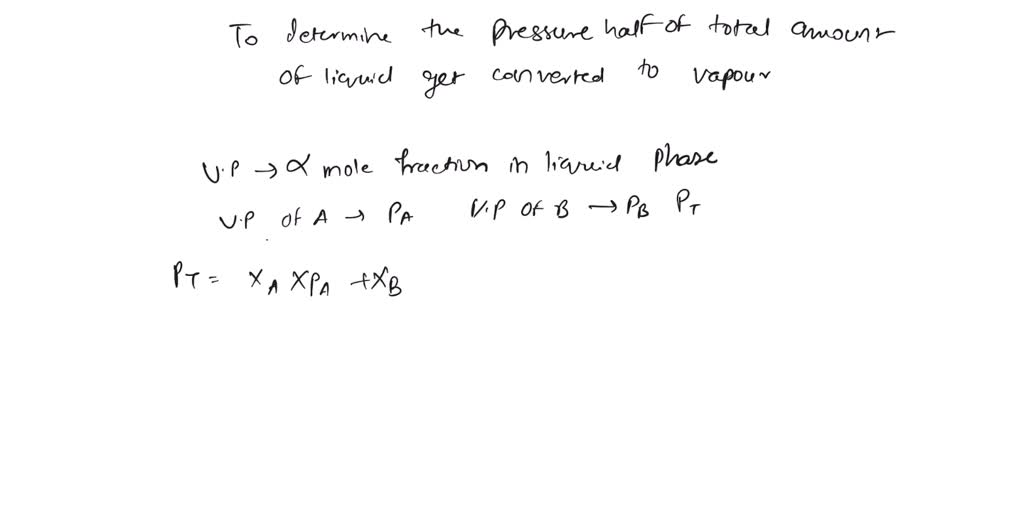 To determine the pressure half of total amount
of liquid get converted to vapour
V.P → α mole fraction in liquid phase
V.P of A → PA V.P of B → PB PT
PT = XA XPA + XB